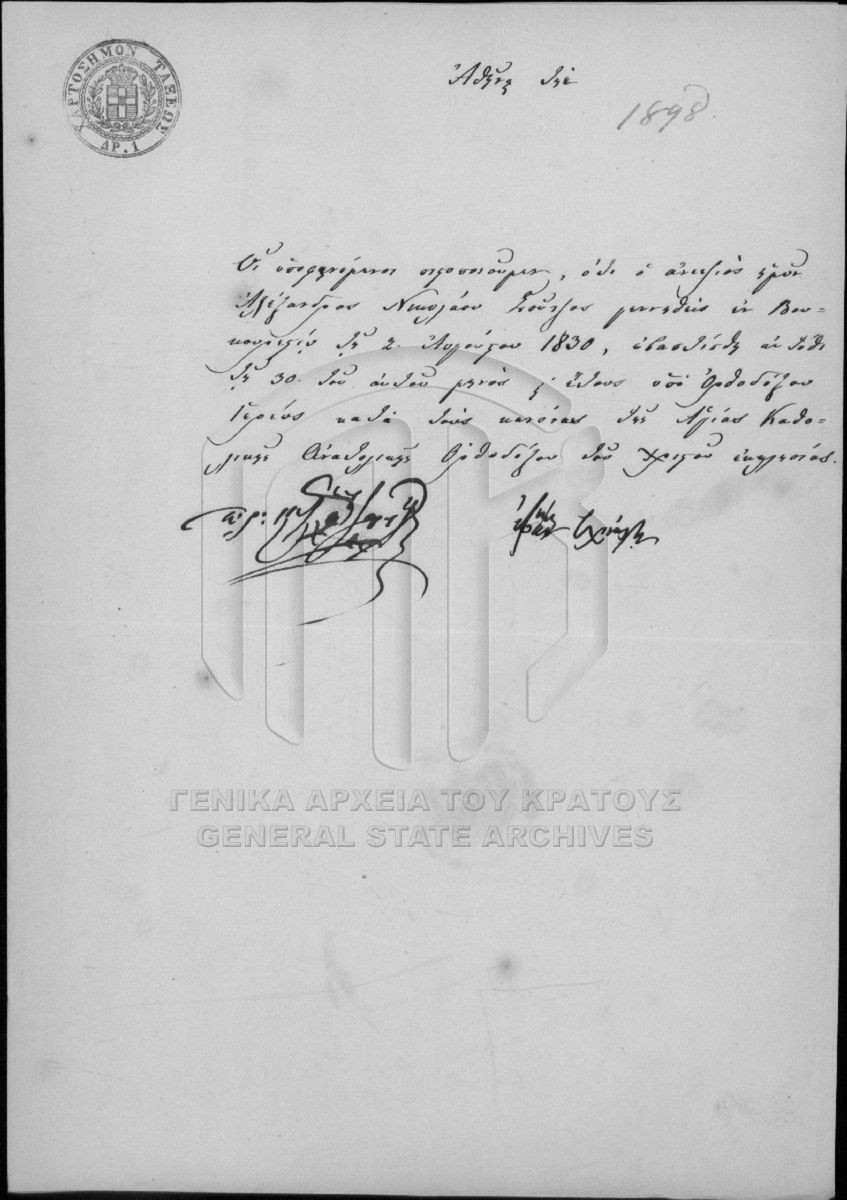 ΧΑΡΤΟΣΗΜΟΝ ΤΑΞΕΩΣ
ΔΡ. 1
Ἀθῆναι τῇ
1898
Οἱ ὑποφαινόμενοι πιστοποιοῦμεν, ὅτι ὁ ἀνεψιὸς ἡμῶν
Ἀλέξανδρος Νικολάου Σοῦτζος γεννηθεὶς ἐν Βου-
κουρεστίῳ τῇ 2. Αὐγούστου 1830, ἐβαπτίσθη αὐτόθι
τῇ 30. τοῦ αὐτοῦ μηνὸς & ἔτους ὑπὸ Ὀρθοδόξου
Ἱερέως κατὰ τοὺς κανόνας τῆς Ἁγίας Καθο-
λικῆς Ἀνατολικῆς Ὀρθοδόξου τοῦ Χριστοῦ ἐκκλησίας.
ΓΕΝΙΚΑ ΑΡΧΕΙΑ ΤΟΥ ΚΡΑΤΟΥΣ
GENERAL STATE ARCHIVES